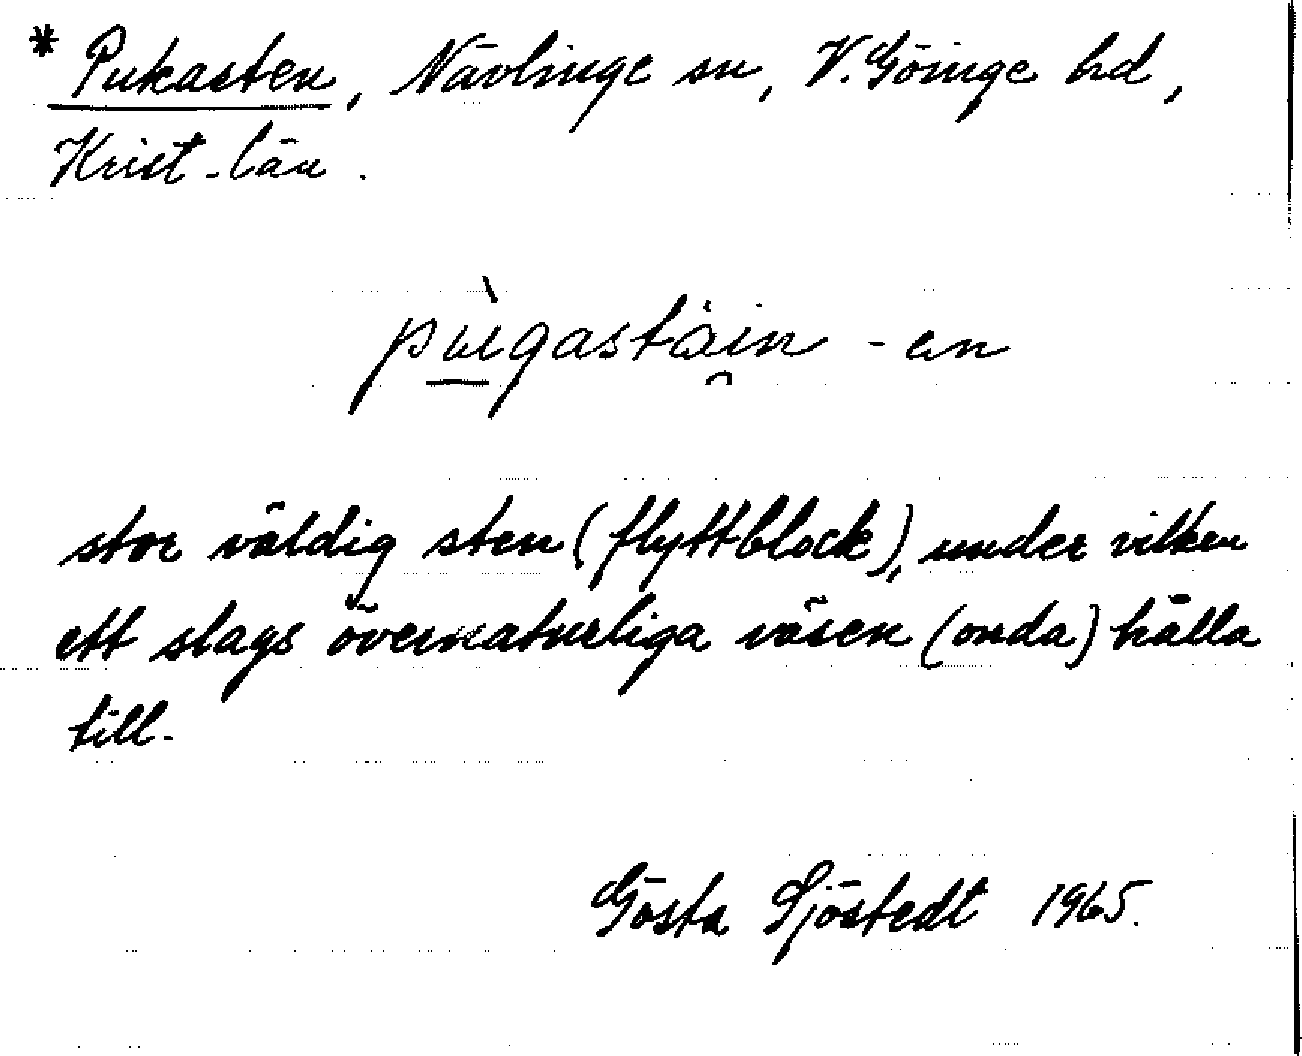 * Pukasten, Nävlinge sn, V. Göinge hd,
Krist-län.
pùgastäin -en
stor väldig sten (flyttblock), under vilken
ett slags övernaturliga väsen (onda) hålla
till.
Gösta Sjöstedt 1965.